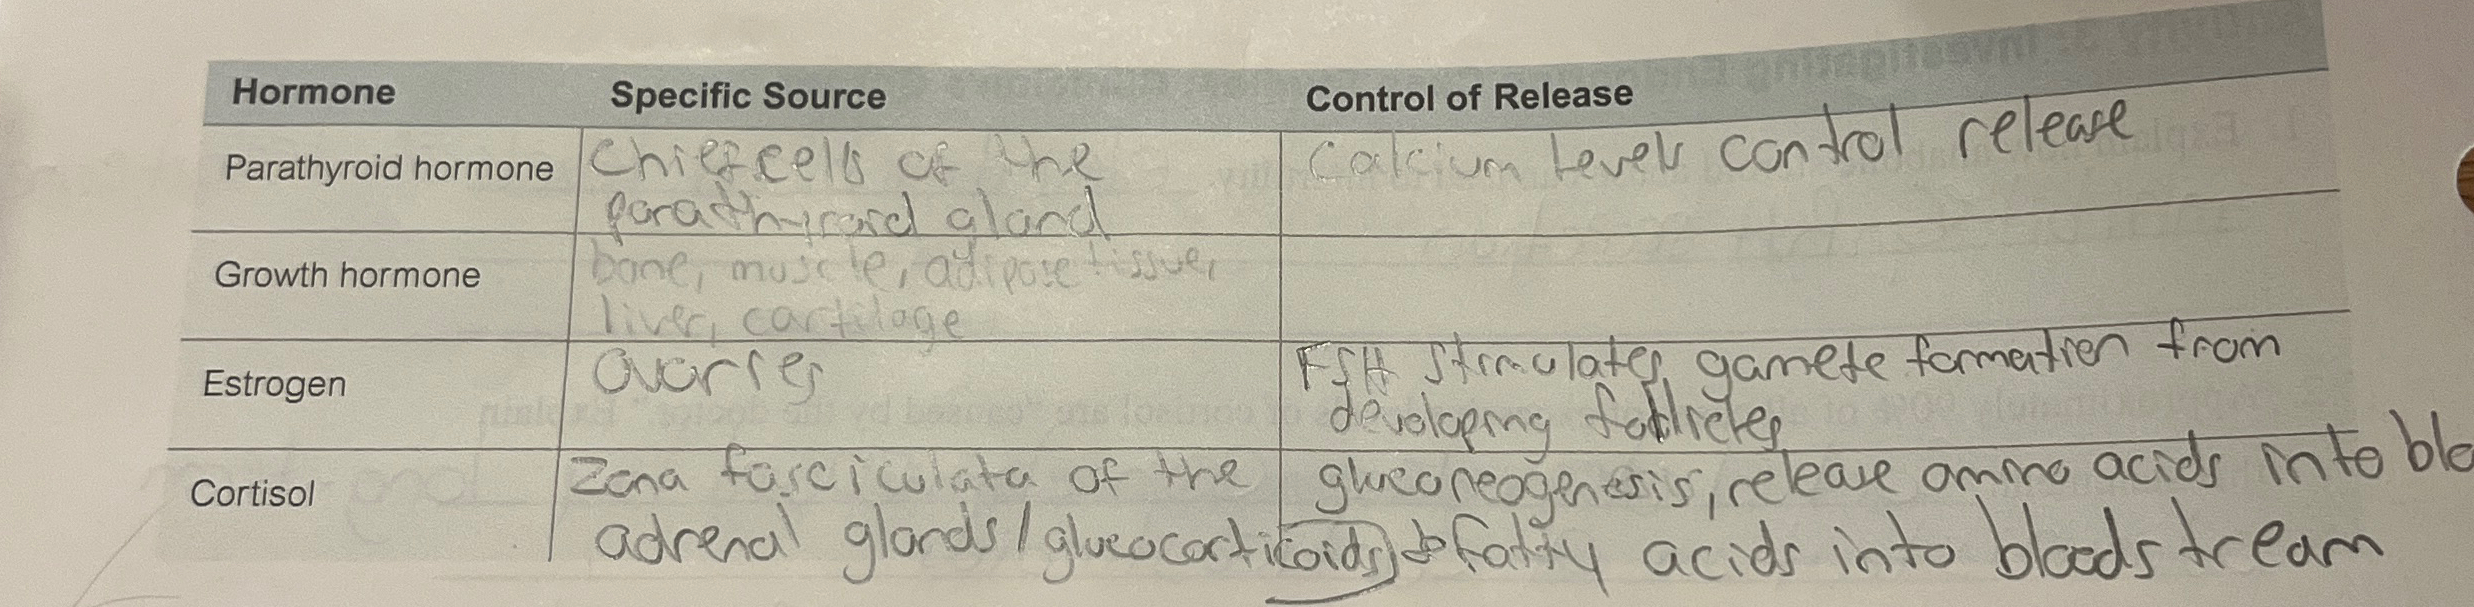 Hormone Specific Source Control of Release
Parathyroid hormone Chief cells of the Calcium levels control release
parathyroid gland
Growth hormone bone, muscle, adipose tissue,
liver, cartilage
Estrogen Ovaries FSH stimulates gamete formation from
developing follicles
Cortisol Zona fasciculata of the gluconeogenesis, release amino acids into blo
adrenal glands/glucocorticoids) fatty acids into bloodstream